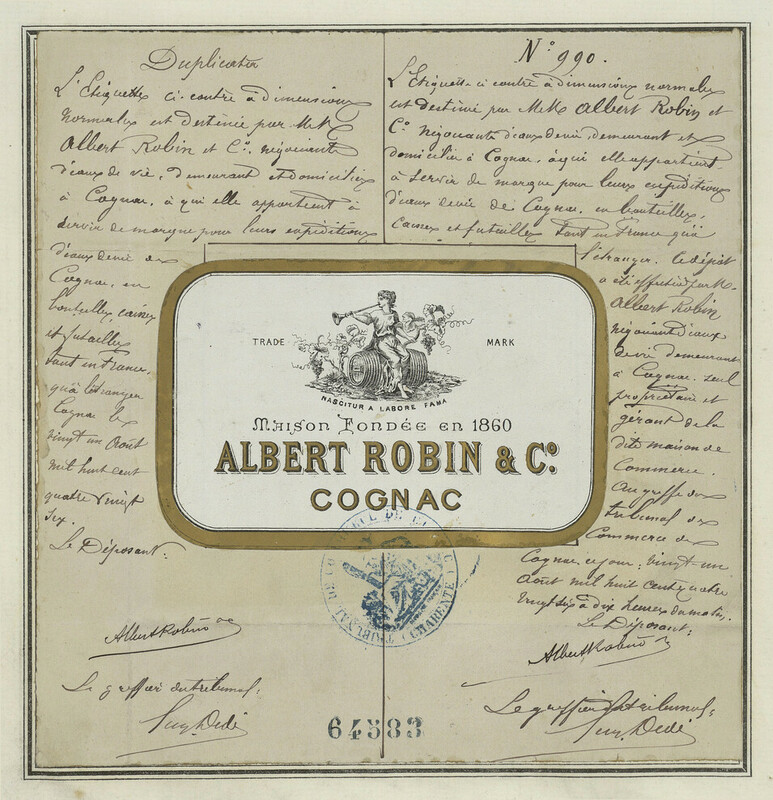 Duplicata
L'Etiquette ci-contre à dimensions
normales est destinée par MrK
Albert Robin et Co, négociants
d'eaux de vie, demeurant et domiciliés
à Cognac, à qui elle appartient à
servir de marque pour leurs expéditions
d'eaux devie de
Cognac, en
bouteilles, caisses
et futailles
tant in France
qu'à l'étranger
Cognac le
vingt un Août
mil huit cent
quatre vingt
six.
Le Déposant:
Albert Robin
Le greffier du tribunal:
No 990.
L'Etiquette ci contre à dimensions normales
est destinée par MrK Albert Robin et
Co négociants d'eaux devie, demeurant et
domiciliés à Cognac, à qui elle appartient
à servir de marque pour leurs expéditions
d'eaux devie de Cognac, en bouteilles,
caisses et futailles tant en France qu'à
l'étranger. Le dépôt
a été effectué par M.
Albert Robin
négociant d'eaux
devie demeurant
à Cognac, seul
propriétaire et
gérant de la
dite maison de
Commerce.
Au greffe du
tribunal de
Commerce de
Cognac ce jour, vingt-un
Août mil huit cent quatre
vingt six à dix heures du matin.
Le Déposant:
Albert Robin
Le greffier du tribunal:
TRADE MARK
NASCITUR A LABORE FAMA
Maison Fondée en 1860
ALBERT ROBIN & Co.
COGNAC
TRIBUNAL DE COMMERCE DE COGNAC (CHARENTE)
64583